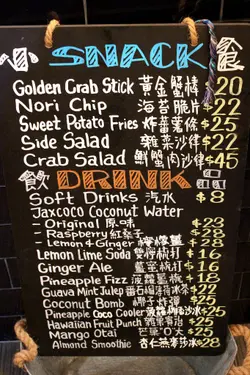 小 SNACK 食
Golden Crab Stick 黃金蟹棒 $20
Nori Chip 海苔脆片 $22
Sweet Potato Fries 炸蕃薯條 $25
Side Salad 雜菜沙律 $22
Crab Salad 鮮蟹肉沙律 $45
飲 DRINK 品
Soft Drinks 汽水 $8
Jaxcoco Coconut Water
- Original 原味 $23
- Raspberry 紅桑子 $28
- Lemon & Ginger 檸檬薑 $28
Lemon Lime Soda $16
Ginger Ale $16
Pineapple Fizz 菠蘿 $18
Guava Mint Julep $25
Coconut Bomb 椰子炸彈 $25
Pineapple Coco Cooler $25
Hawaiian Fruit Punch $25
Mango Otai $25
Almond Smoothie 杏仁燕麥莎冰 $28